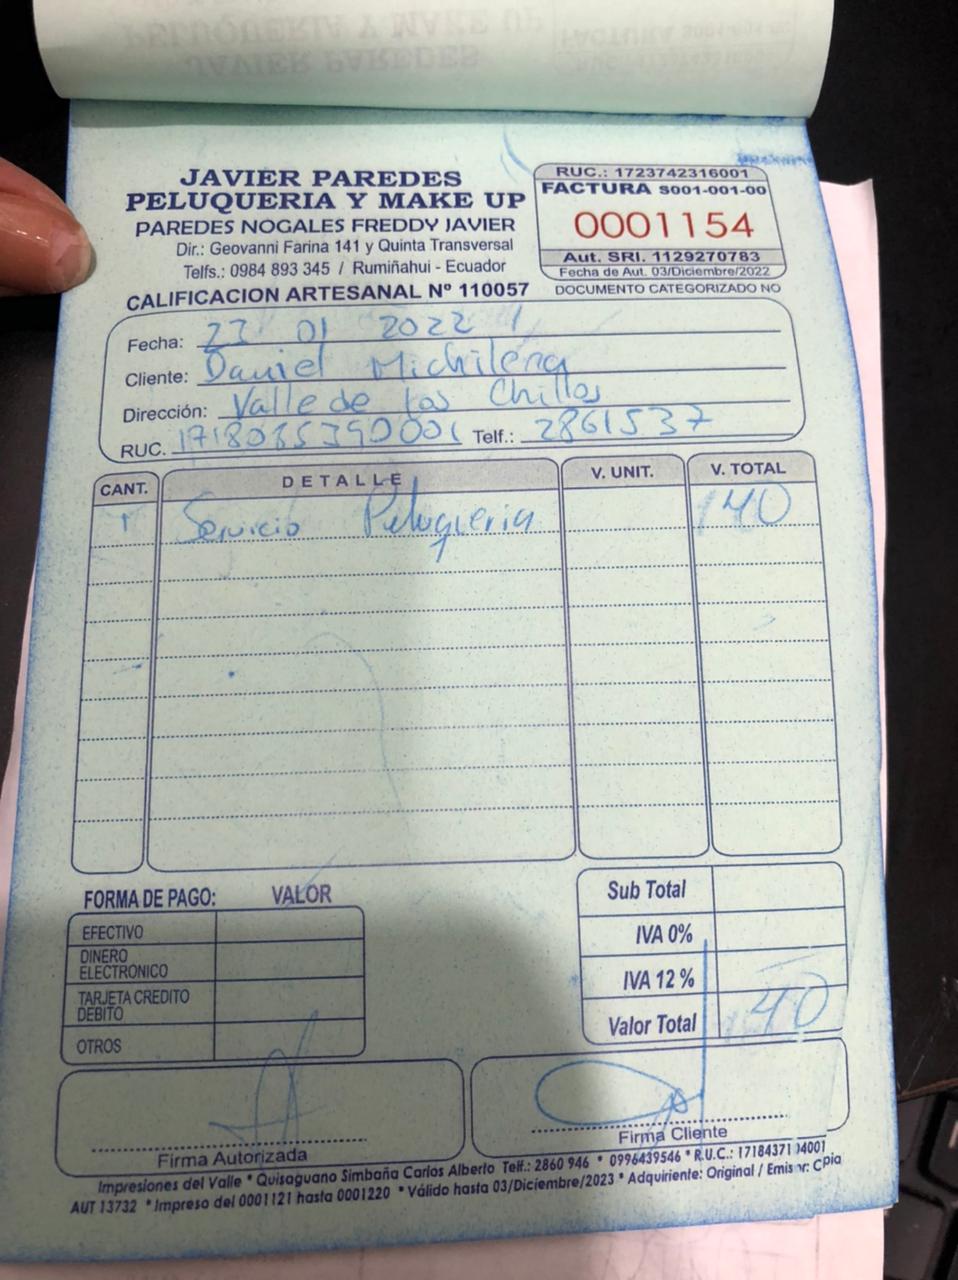 JAVIER PAREDES
PELUQUERIA Y MAKE UP
PAREDES NOGALES FREDDY JAVIER
Dir.: Geovanni Farina 141 y Quinta Transversal
Telfs.: 0984 893 345 / Rumiñahui - Ecuador
CALIFICACION ARTESANAL Nº 110057
RUC.: 1723742316001
FACTURA S001-001-00
0001154
Aut. SRI. 1129270783
Fecha de Aut. 03/Diciembre/2022
DOCUMENTO CATEGORIZADO NO
Fecha: 23 01 2022
Cliente: Daniel Michilena
Dirección: Valle de los Chillos
RUC. Telf.: 2861537
CANT. DETALLE V. UNIT. V. TOTAL
1 Servicio Peluqueria 140
FORMA DE PAGO: VALOR
EFECTIVO
DINERO ELECTRONICO
TARJETA CREDITO DEBITO
OTROS
Sub Total
IVA 0%
IVA 12 %
Valor Total 140
Firma Autorizada
Firma Cliente
Impresiones del Valle * Quisaguano Simbaña Carlos Alberto Telf.: 2860 946 * 0996439546 * R.U.C.:
AUT 13732 * Impreso del 0001121 hasta 0001220 * Válido hasta 03/Diciembre/2023 * Adquiriente: Original / Emisor: Copia